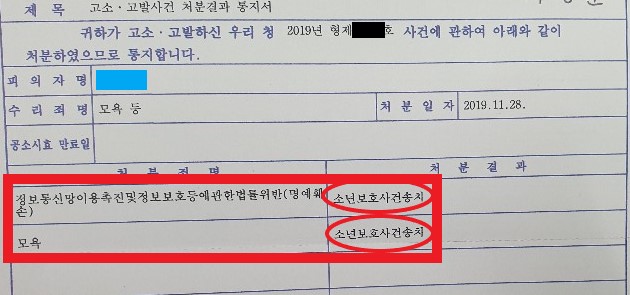 제 목 고소 · 고발사건 처분결과 통지서
귀하가 고소 · 고발하신 우리 청 2019년 형제 호 사건에 관하여 아래와 같이
처분하였으므로 통지합니다.
피 의 자 명
수 리 죄 명 모욕 등 처 분 일 자 2019.11.28.
공소시효 만료일
처 분 죄 명 처 분 결 과
정보통신망이용촉진및정보보호등에관한법률위반(명예훼 소년보호사건송치
손)
모욕 소년보호사건송치